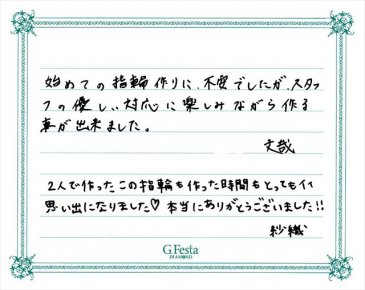 始めての指輪作りに、不安でしたが、スタッ
フの優しい対応に楽しみながら作る
事が出来ました。
文哉
2人で作ったこの指輪も作った時間もとってもイイ
思い出になりました♡本当にありがとうございました!!
紗織
G.Festa
DIAMOND